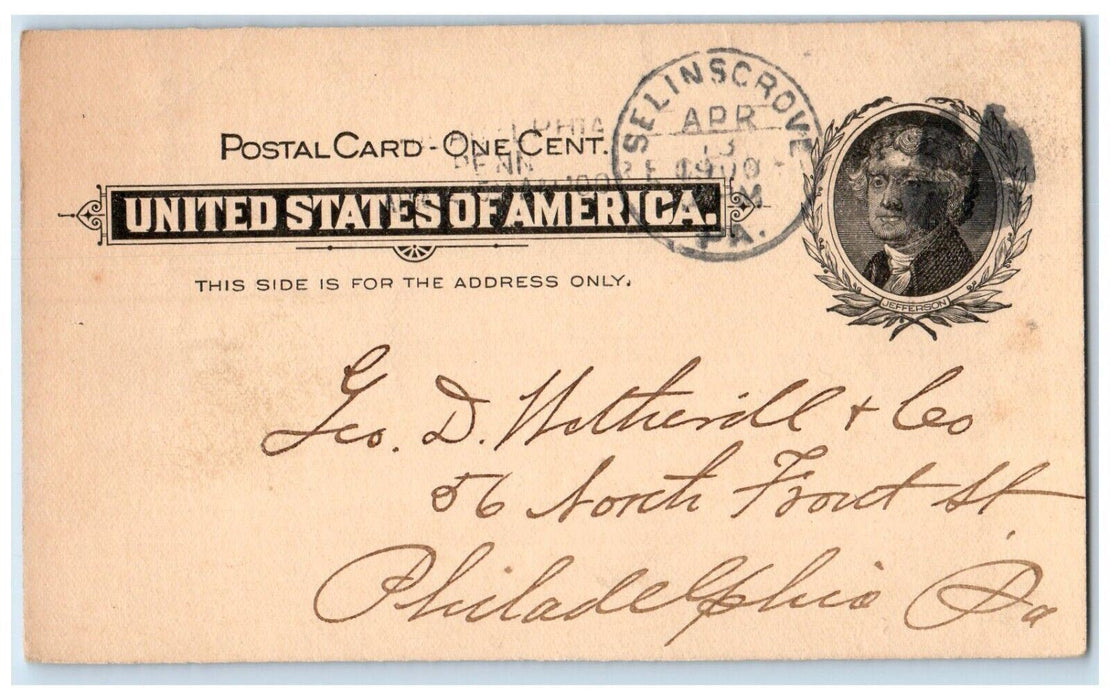 POSTAL CARD - ONE CENT.
UNITED STATES OF AMERICA.
THIS SIDE IS FOR THE ADDRESS ONLY.
SELINSGROVE
APR
13
1900
PA.
PENN
JEFFERSON
Geo. D. Wetherill & Co
56 North Front St
Philadelphia Pa